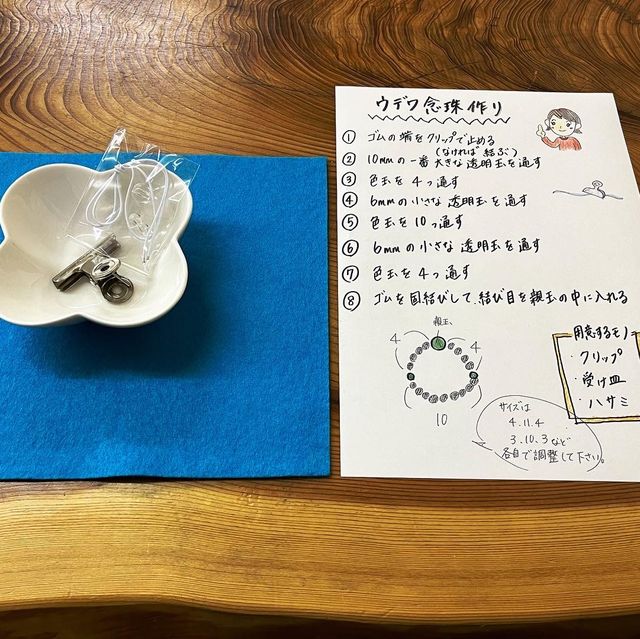 ウデワ念珠作り
① ゴムの端をクリップで止める
(なければ結ぶ)
② 10mmの一番大きな透明玉を通す
③ 色玉を4つ通す
④ 6mmの小さな透明玉を通す
⑤ 色玉を10つ通す
⑥ 6mmの小さな透明玉を通す
⑦ 色玉を4つ通す
⑧ ゴムを固結びして、結び目を親玉の中に入れる
親玉
4
4
10
用意するモノ
・クリップ
・受け皿
・ハサミ
サイズは
4.11.4
3.10.3など
各自で調整して下さい。